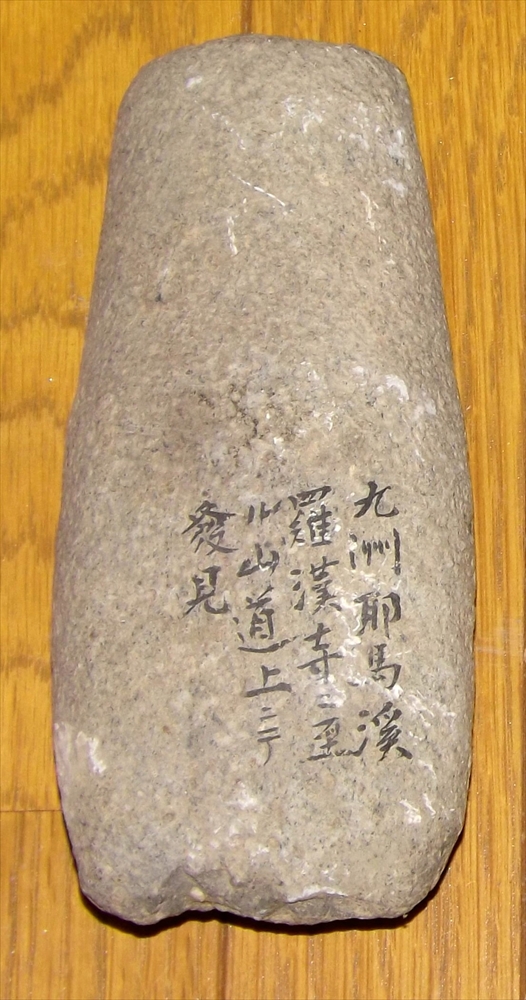 九洲耶馬溪
羅漢寺ニ至
ル山道上ニテ
發見